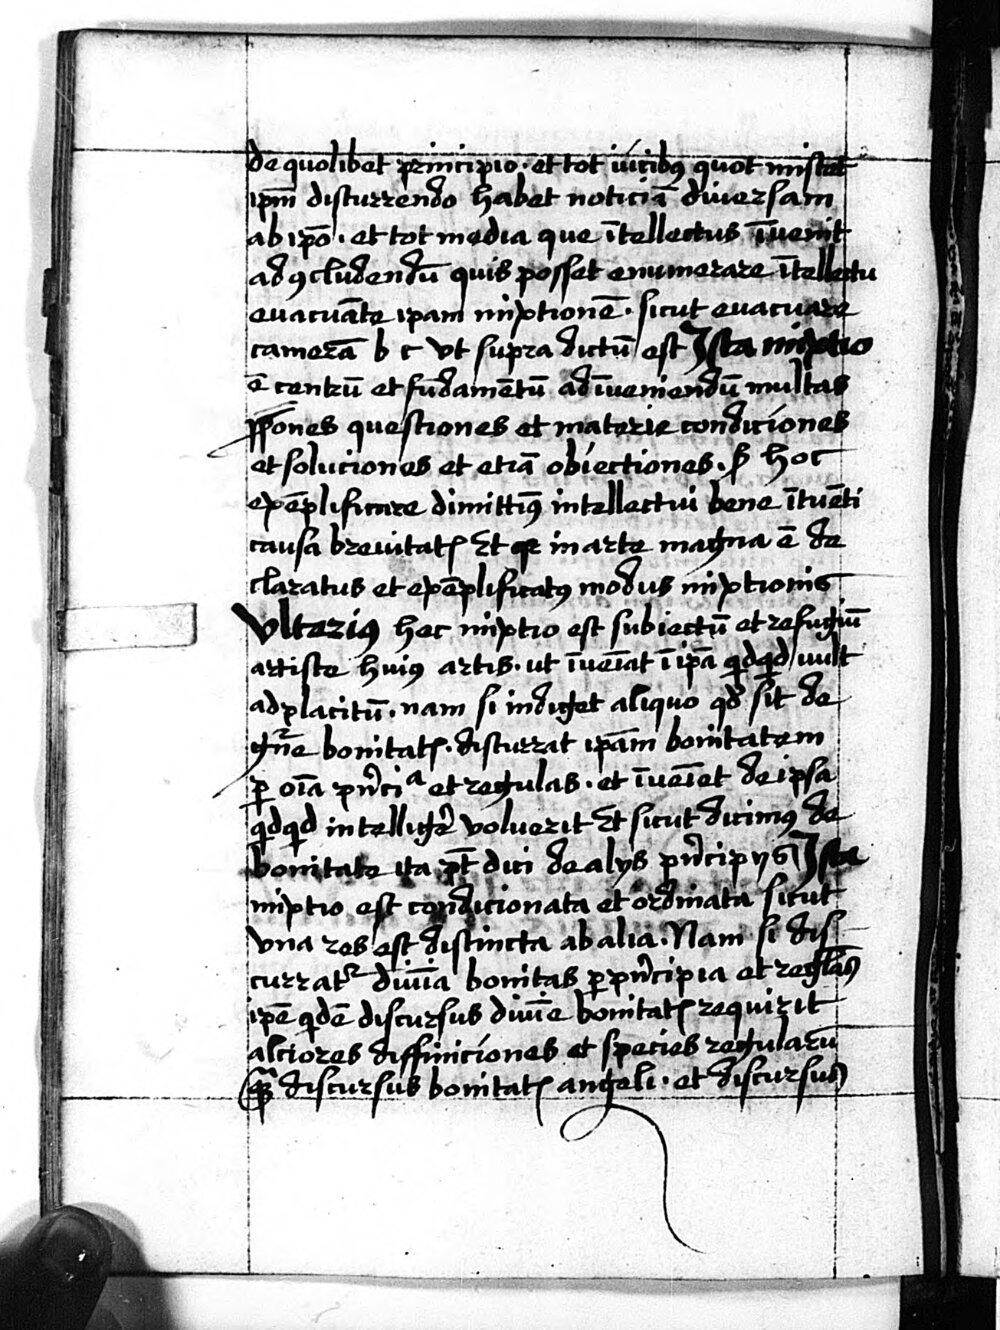 de quolibet principio · et tot iūicibꝰ quot miscet
ip̄m discurrendo habet noticiā diuersam
ab ip̄o · et tot media que ītellectus īuenit
ad ꝯcludendū quis posset enumerare ītellectu
euacuāte ipam mixtionē · sicut euacuare
camerā b c vt supra dictū est Ista mixtio
ē centrū et fūdamētū ad īueniendū multas
ꝓp̄ones questiones et materie condiciones
et soluciones et etiā obiectiones · hoc
exēplificare dimittimꝰ intellectui bene ītuēti
causa breuitatꝭ Et in arte magna ē de
claratus et exēplificatꝰ modus mixtionis
Vlteriꝰ hec mixtio est subiectū et refugiū
artiste huiꝰ artis · ut īueīat ī ip̄a qͥdqͥd uult
ad placitū · nam si indiget aliquo qd̄ sit de
gn̄e bonitatꝭ · discurrat ipām bonitatem
ꝑ oīa pͥnciᵃ et regulas · et īueīet de ipsa
qͥdqͥd intelligē voluerit Et sicut dicimꝰ de
bonitate ita pt̄ dici de alijs pͥncipijs Ista
mixtio est condicionata et ordinata sicut
vna res est distincta ab alia · Nam si dis
curratᷣ diuīa bonitas ꝑ pͥncipia et reglas
ipē qͥdē discursus diuīe bonitatꝭ requirit
alciores diffiniciones et species regularū
qᷓꝫ discursus bonitatꝭ angeli · et discursus